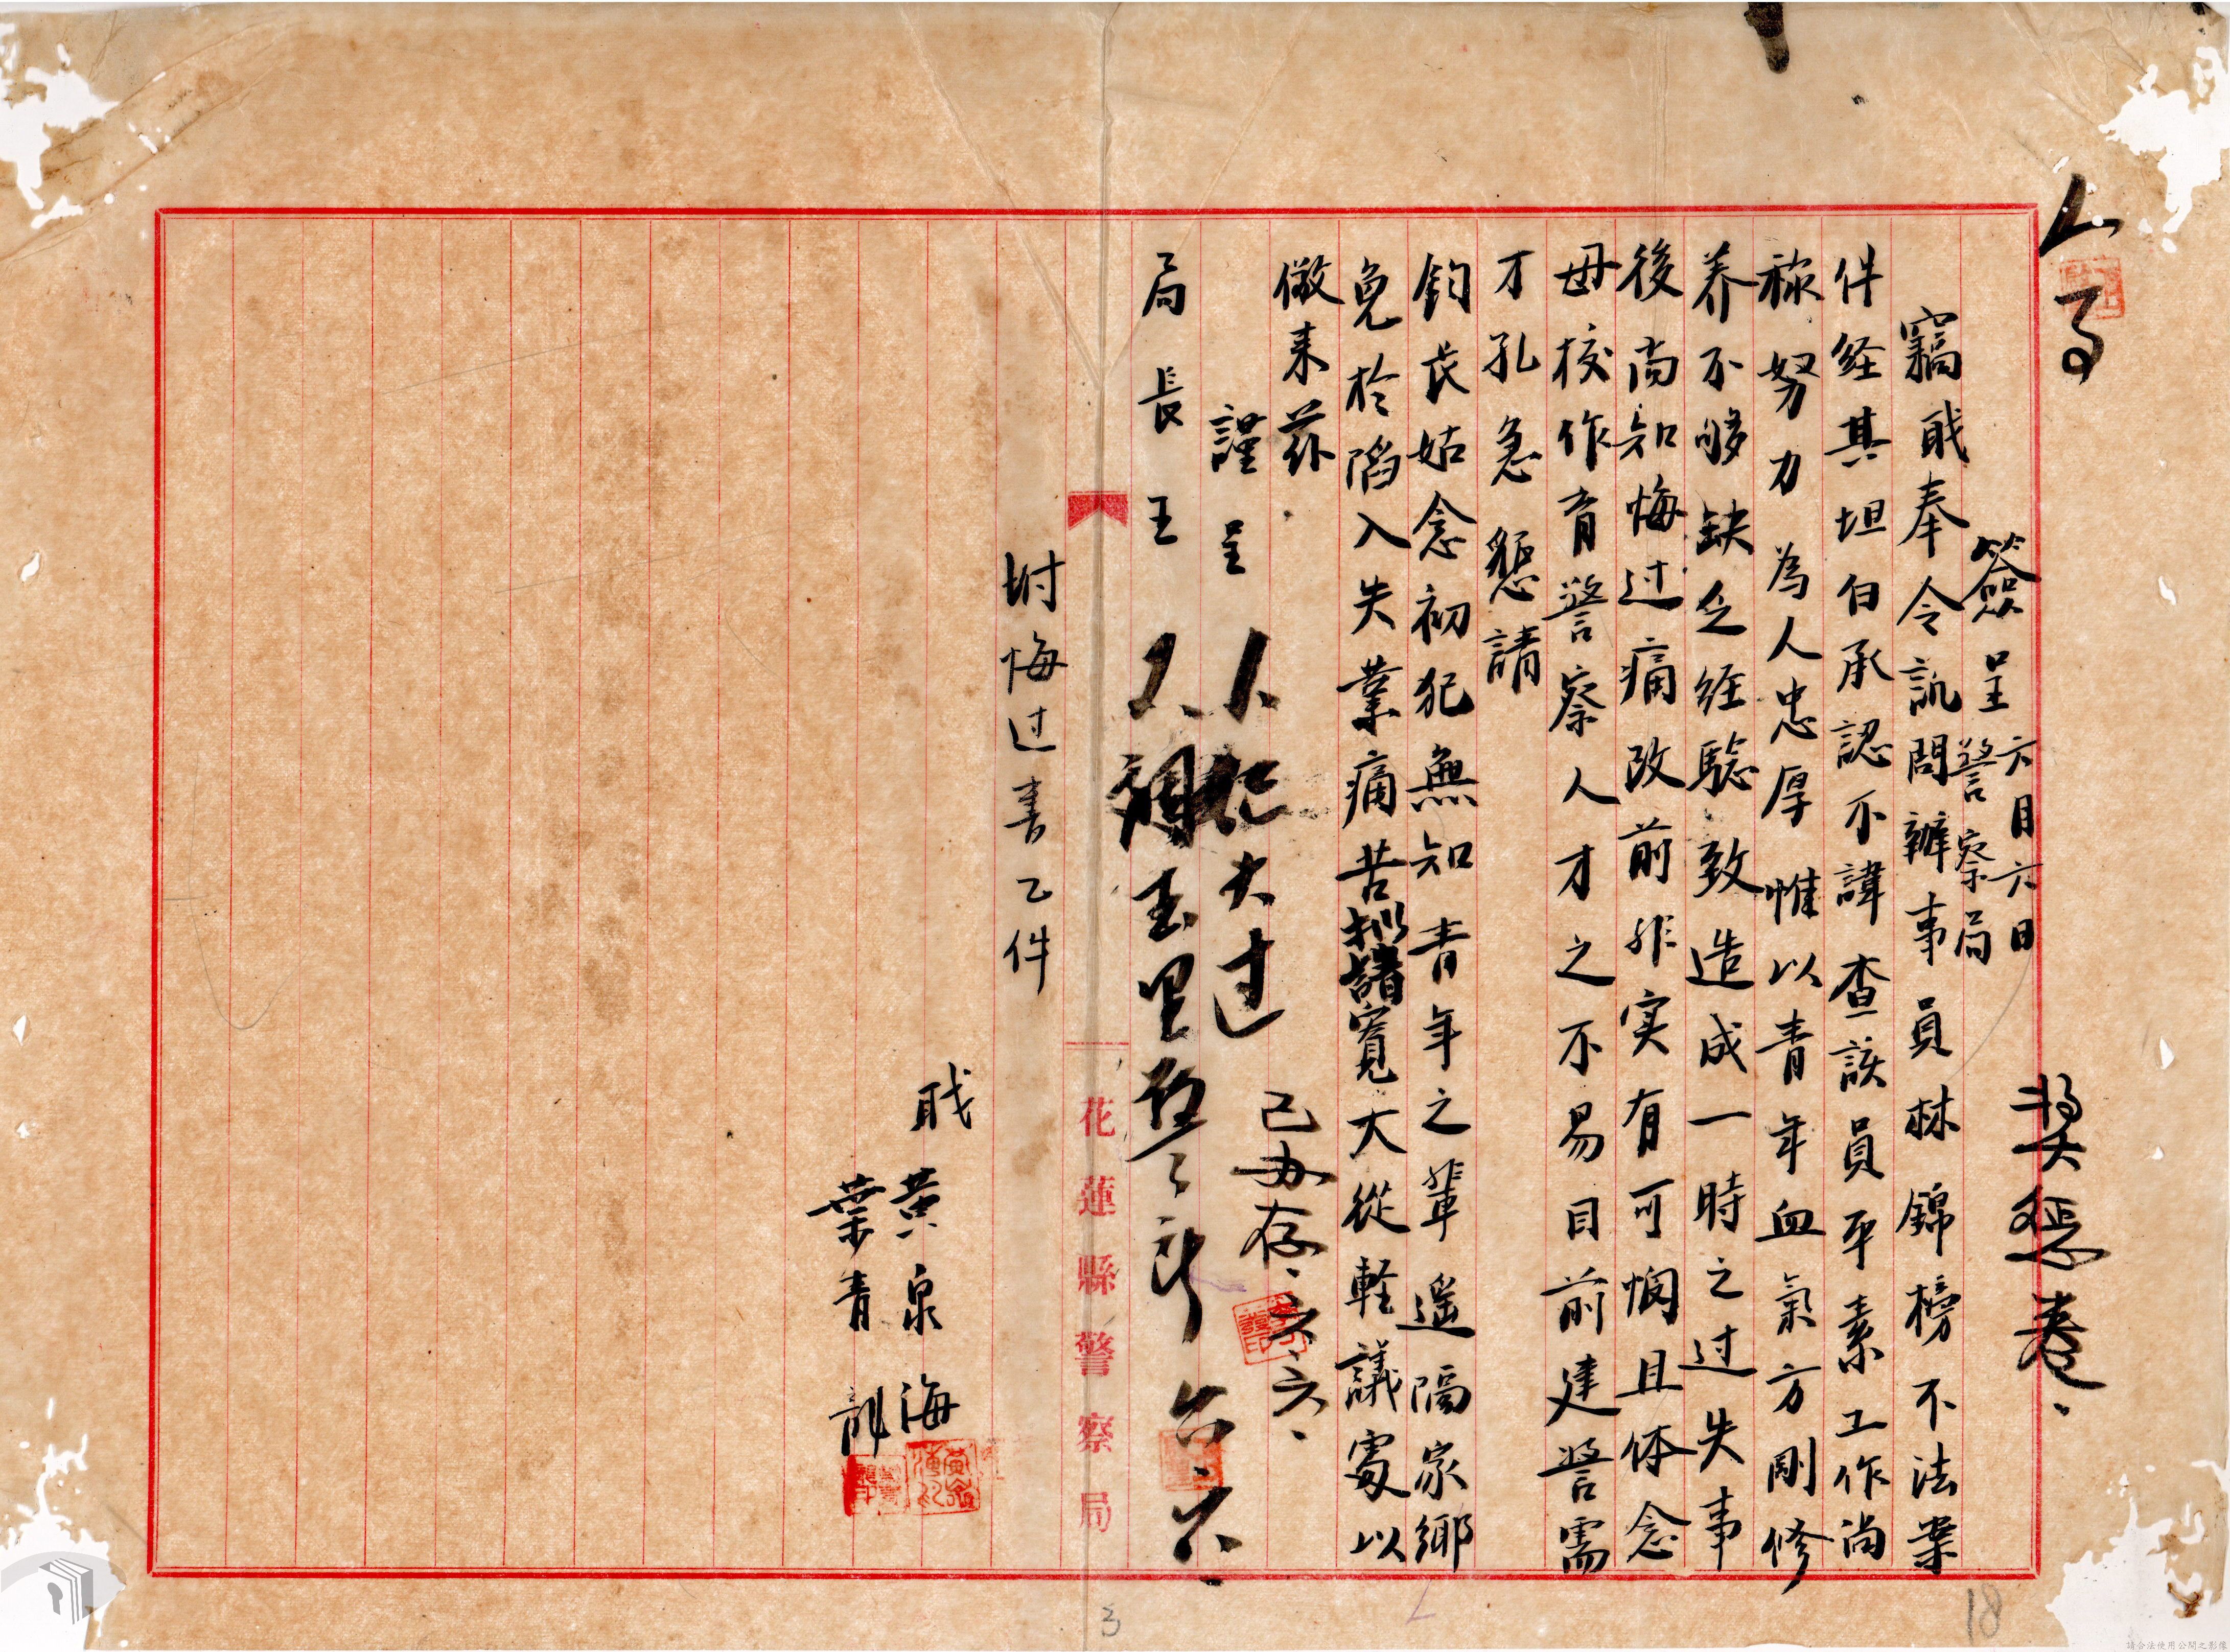 人事
獎懲卷
簽呈 六月六日
警察局
竊戝奉令訊問辦事員林錦榜不法案
件経其坦白承認不諱查該員平素工作尚
称努力為人忠厚惟以青年血氣方剛修
养不够缺乏经驗致造成一時之过失事
後尚知悔过痛改前非实有可悯且体念
母校作育警察人才之不易目前建警需
才孔急懇請
鈞長姑念初犯無知青年之輩遥隔家鄉
免於陷入失業痛苦拟請寬大从軽議處以
儆来茲
謹呈
局長王
人記大过
已办存六、六、
六、六、
附悔过書乙件
戝黃泉海
葉青
花蓮縣警察局
18
3
請合法使用公開之影像